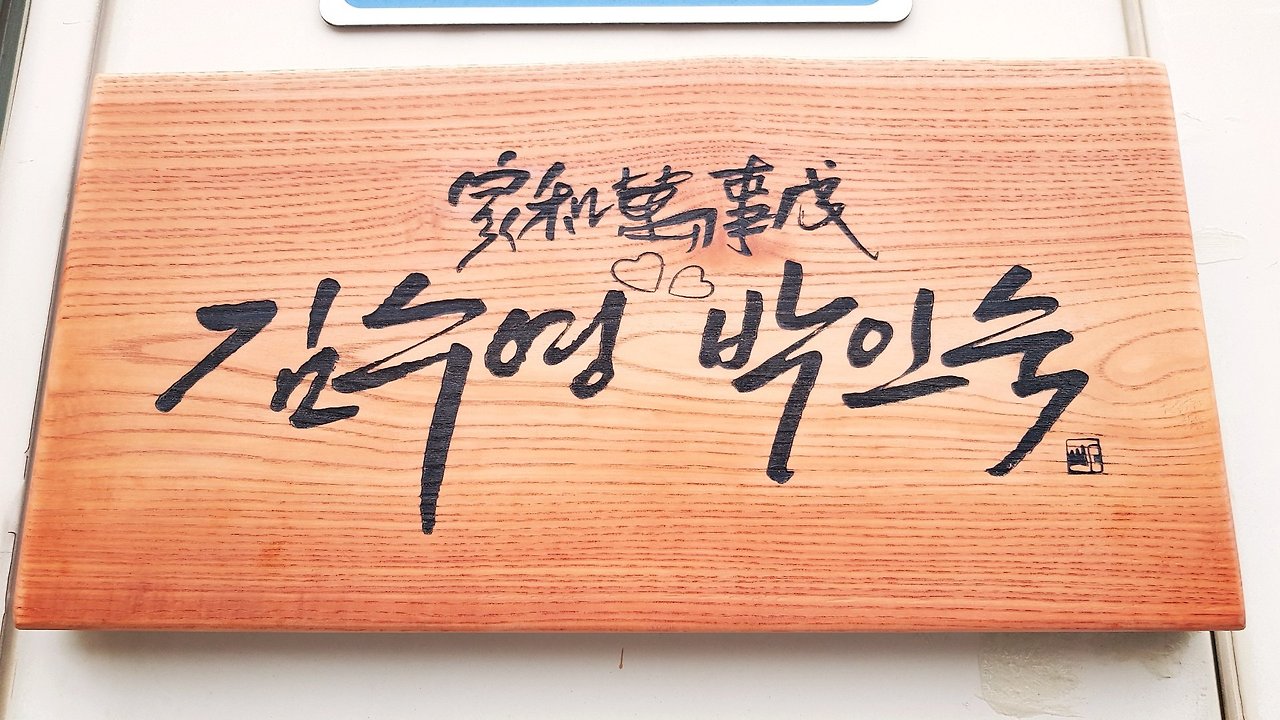 家和萬事成
김수영 박인숙